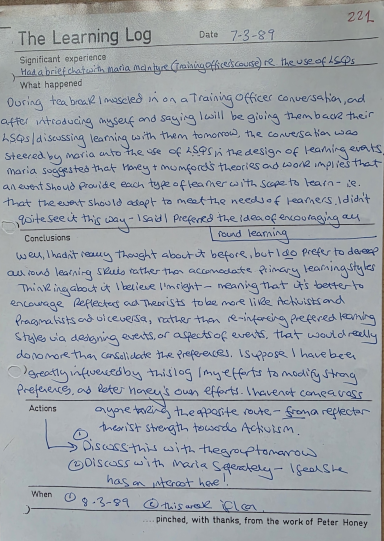 221
The Learning Log Date 7-3-89
Significant experience
Had a brief chat with maria mcIntyre (Training Officers course) re the use of LSQs
What happened
During tea break I muscled in on a Training Officer conversation, and
after introducing myself and saying I will be giving them back their
LSQs/discussing learning with them tomorrow, the conversation was
steered by maria onto the use of LSQs in the design of learning events.
maria suggested that Honey + mumford's theories and work implies that
an event should provide each type of learner with scope to learn - i.e.
that the event should adapt to meet the needs of learners, I didn't
quite see it this way - I said I preferred the idea of encouraging all
round learning
Conclusions
Well, I hadn't really thought about it before, but I do prefer to develop
all round learning skills rather than accomodate primary learning styles
Thinking about it I believe I'm right - meaning that it's better to
encourage Reflectors and Theorists to be more like Activists and
Pragmatists and vice versa, rather than re-inforcing preferred learning
styles via designing events, or aspects of events, that would really
do no more than consolidate the preferences. I suppose I have been
greatly influenced by this log / my efforts to modify strong
Preference, and Peter Honey's own efforts. I have not come across
anyone taking the opposite route - from a reflector
theorist strength towards Activism.
Actions
① Discuss this with the group tomorrow
② Discuss with Maria Seperately - I feel she
has an interest here!
When ① 8-3-89 ② this week if I can.
....pinched, with thanks, from the work of Peter Honey